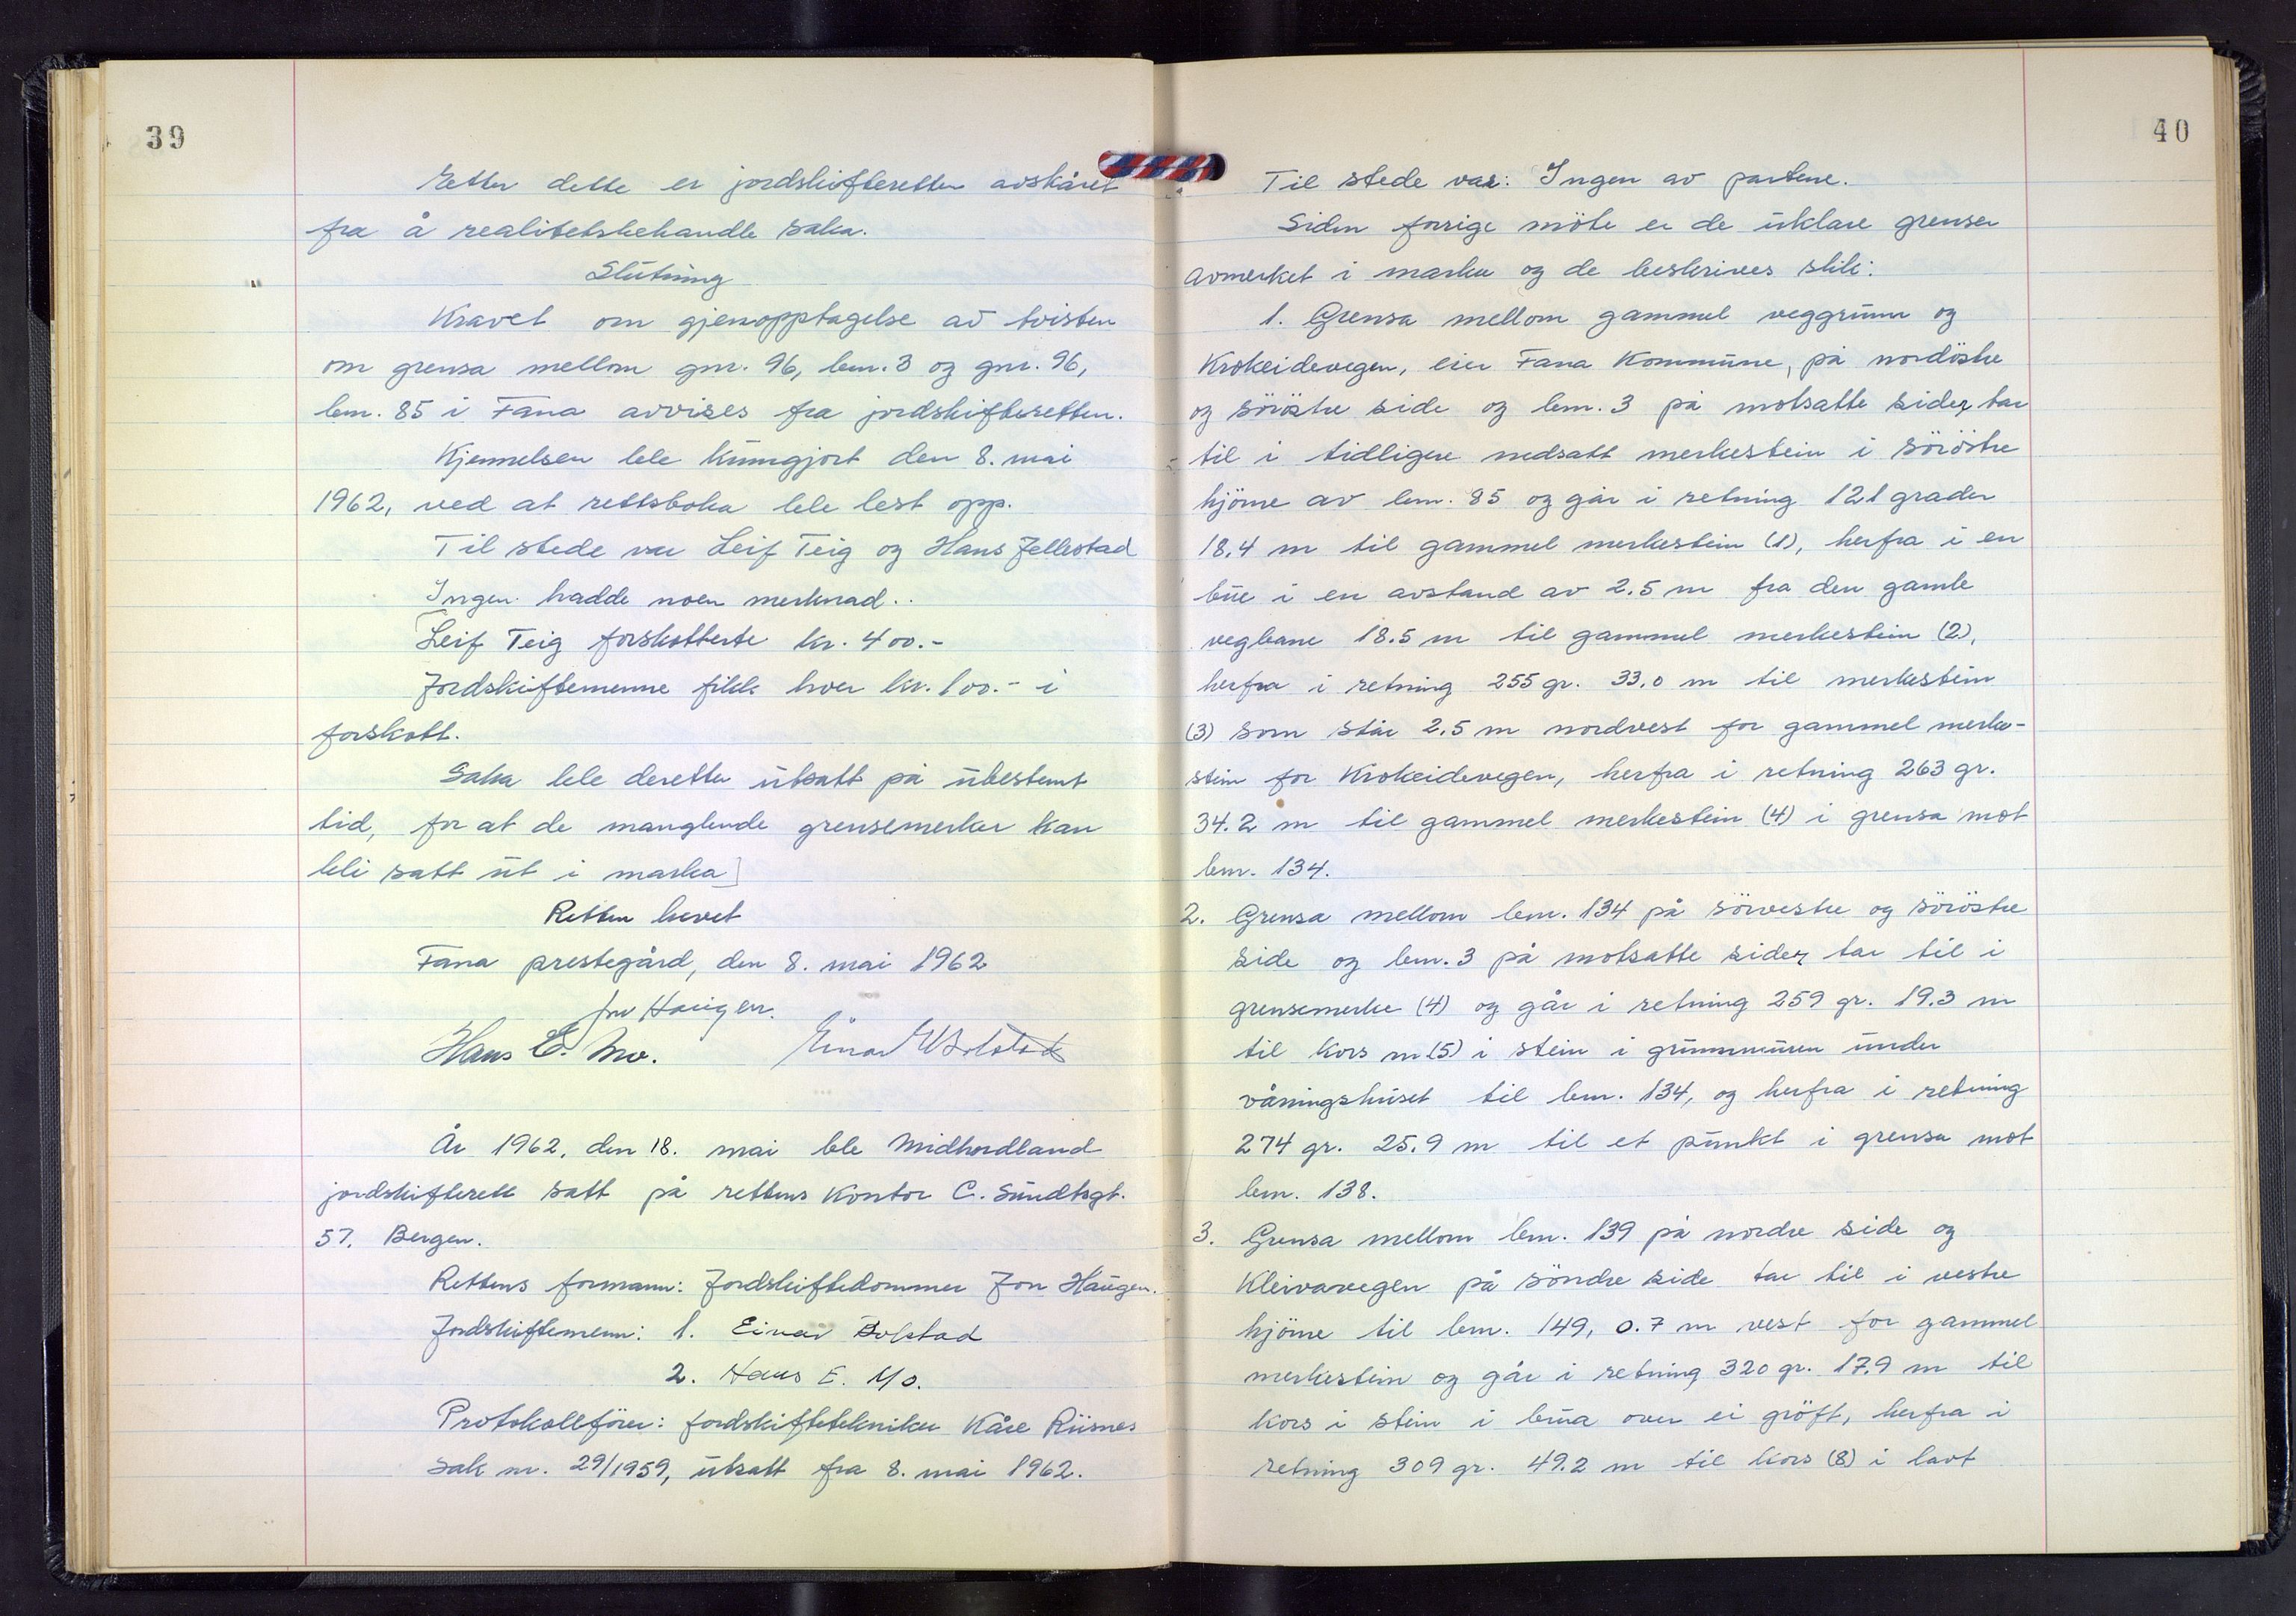 39
Etter dette er jordskifteretten avskåret
fra å realitetsbehandle saka.
Slutning
Kravet om gjenopptagelse av tvisten
om grensa mellom gnr. 96, bnr. 3 og gnr. 96,
bnr. 85 i Fana avvises fra jordskifteretten.
Kjennelsen ble kunngjort den 8. mai
1962, ved at rettsboka ble lest opp.
Til stede var Leif Teig og Hans Jellestad
Ingen hadde noen merknad.
Leif Teig forskotterte kr. 400.-
Jordskiftemenne fikk hver kr. 100.- i
forskott.
Saka ble deretter utsatt på ubestemt
tid, for at de manglende grensemerker kan
bli satt ut i marka]
Retten hevet
Fana prestegård, den 8. mai 1962
Jon Haugen.
Hans E. Mo. Einar Bolstad
År 1962, den 18. mai ble Midhordland
jordskifterett satt på rettens kontor C. Sundtsgt.
57. Bergen.
Rettens formann: Jordskiftedommer Jon Haugen.
Jordskiftemenn: 1. Einar Bolstad
2. Hans E. Mo.
Protokollförer: Jordskiftetekniker Kåre Riisnes
Sak nr. 29/1959, utsatt fra 8. mai 1962.
40
Til stede var: Ingen av partene.
Siden forrige möte er de uklare grenser
avmerket i marka og de beskrives slik:
1. Grensa mellom gammel veggrunn og
Krokeidevegen, eier Fana Kommune, på nordöstre
og söröstre side og bnr. 3 på motsatte sider tar
til i tidligere nedsatt merkestein i söröstre
hjörne av bnr. 85 og går i retning 121 grader
18.4 m til gammel merkestein (1), herfra i en
bue i en avstand av 2.5 m fra den gamle
vegbane 18.5 m til gammel merkestein (2),
herfra i retning 255 gr. 33.0 m til merkestein
(3) som står 2.5 m nordvest for gammel merke-
stein for Krokeidevegen, herfra i retning 263 gr.
34.2 m til gammel merkestein (4) i grensa mot
bnr. 134.
2. Grensa mellom bnr. 134 på sörvestre og söröstre
side og bnr. 3 på motsatte sider tar til i
grensemerke (4) og går i retning 259 gr. 19.3 m
til kors m (5) i stein i grunnmuren under
våningshuset til bnr. 134, og herfra i retning
274 gr. 25.9 m til et punkt i grensa mot
bnr. 138.
3. Grensa mellom bnr. 139 på nordre side og
Kleivavegen på söndre side tar til i vestre
hjörne til bnr. 149, 0.7 m vest for gammel
merkestein og går i retning 320 gr. 17.9 m til
kors i stein i brua over ei gröft, herfra i
retning 309 gr. 49.2 m til kors (8) i lavt